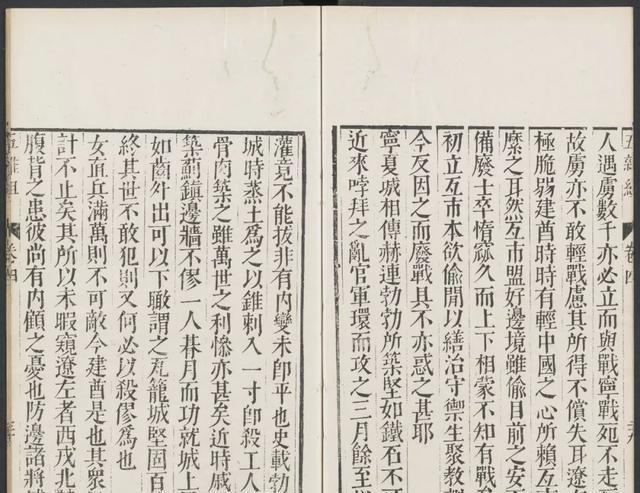 五雜組 卷四
人遇虜數千亦必立而與戰寧戰死不走
故虜亦不敢輕戰慮其所得不償失耳遼
極脆弱建酋時時有輕中國之心所賴互
縻之耳然互市盟好邊境雖偷目前之安
備廢士卒惰窳久而上下相蒙不知有戰
初立互市本欲偷閒以繕治守禦生聚教
今反因之而廢戰具不亦惑之甚耶
寧夏城相傳赫連勃勃所築堅如鐵石不可
近來哱拜之亂官軍環而攻之三月餘至
灌竟不能拔非有內變未卽平也史載勃
城時蒸土爲之以錐刺入一寸卽殺工人
骨肉築之雖萬世之利慘亦甚矣近時戚
築薊鎮邊牆不僇一人朞月而功就城上
如齒外出可以下瞰謂之瓦籠城堅固百
終其世不敢犯則又何必以殺僇爲也
女直兵滿萬則不可敵今建酋是也其衆
計不止矣其所以未暇窺遼左者西戎北
腹背之患彼尚有內顧之憂也防邊諸將
五雜組 卷四